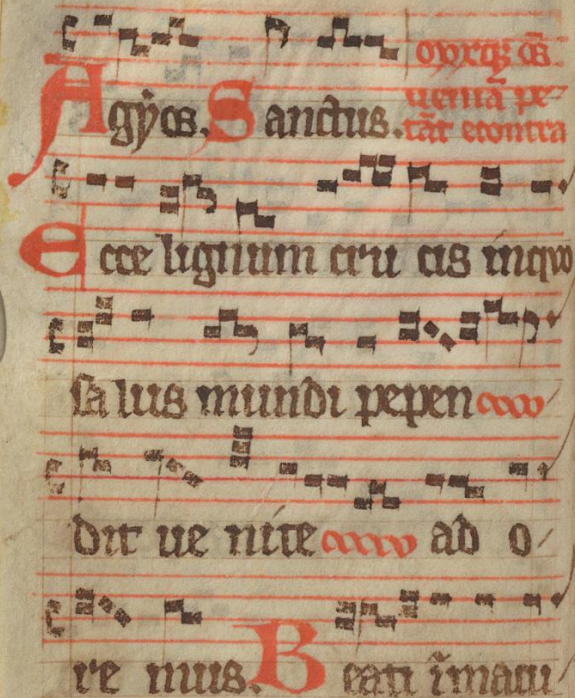 Agẏos. Sanctus.
ueniā pe
tāt econtra
Ecce lignum cru cis in quo
sa lus mundi pepen
dit ue nite ad o
re mus. B eati īmacu